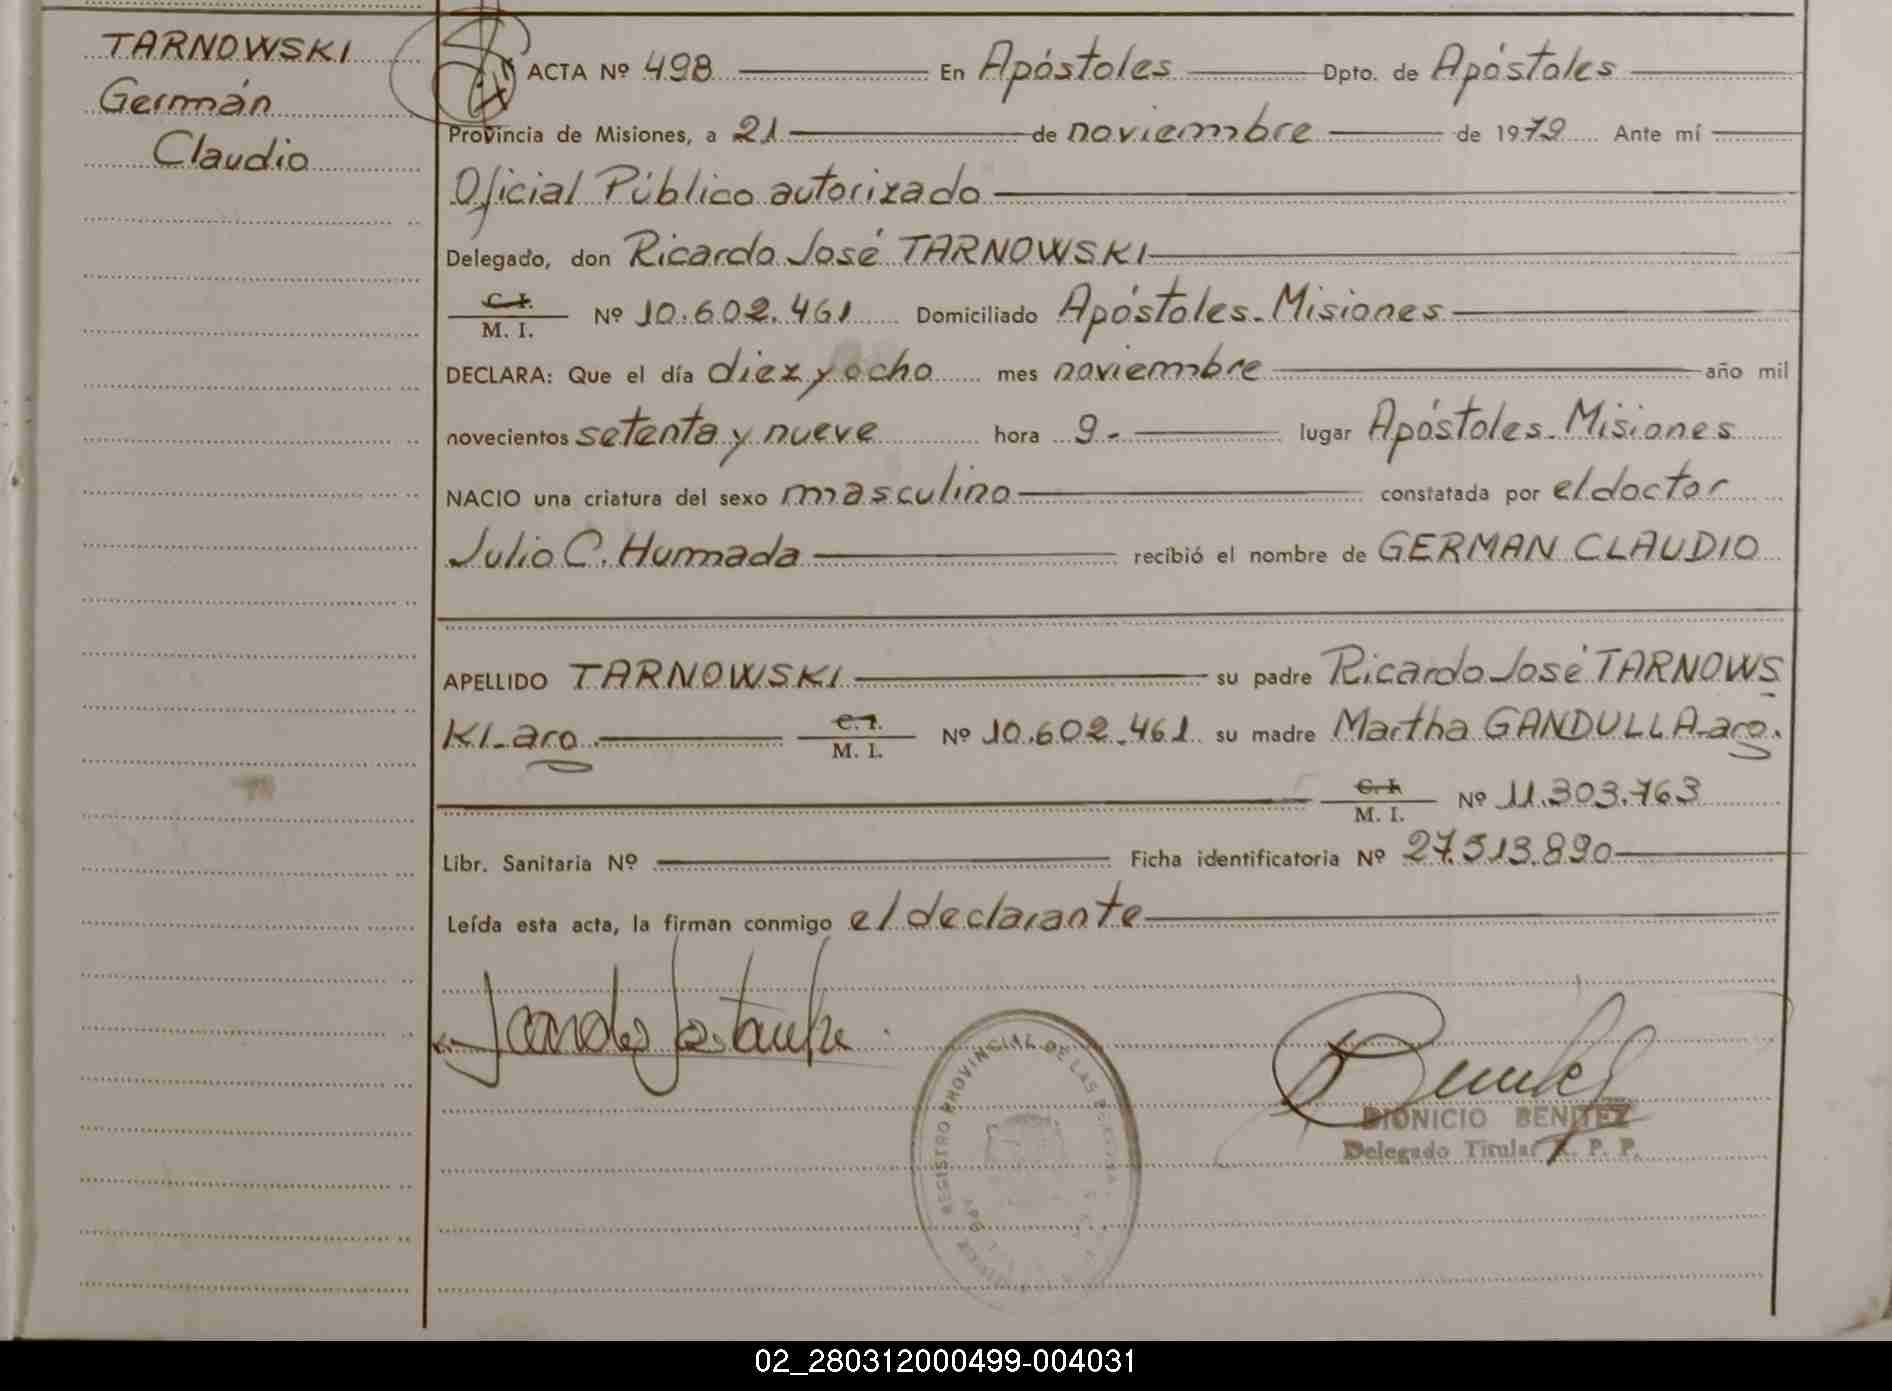 TARNOWSKI
Germán
Claudio
ACTA Nº 498 En Apóstoles Dpto. de Apóstoles
Provincia de Misiones, a 21 de noviembre de 1979 Ante mí
Oficial Público autorizado
Delegado, don Ricardo José TARNOWSKI
C. I.
M. I. Nº 10.602.461 Domiciliado Apóstoles-Misiones
DECLARA: Que el día diez y ocho mes noviembre año mil
novecientos setenta y nueve hora 9- lugar Apóstoles-Misiones
NACIO una criatura del sexo masculino constatada por el doctor
Julio C. Humada recibió el nombre de GERMAN CLAUDIO
APELLIDO TARNOWSKI su padre Ricardo José TARNOWS
KI-arg. C. I. M. I. Nº 10.602.461 su madre Martha GANDULLA-arg.
C. I.
M. I. Nº 11.303.763
Libr. Sanitaria Nº Ficha identificatoria Nº 27.513.890
Leída esta acta, la firman conmigo el declarante
REGISTRO PROVINCIAL DE LAS
DIONICIO BENITEZ
Delegado Titular R. P. P.
02_280312000499-004031